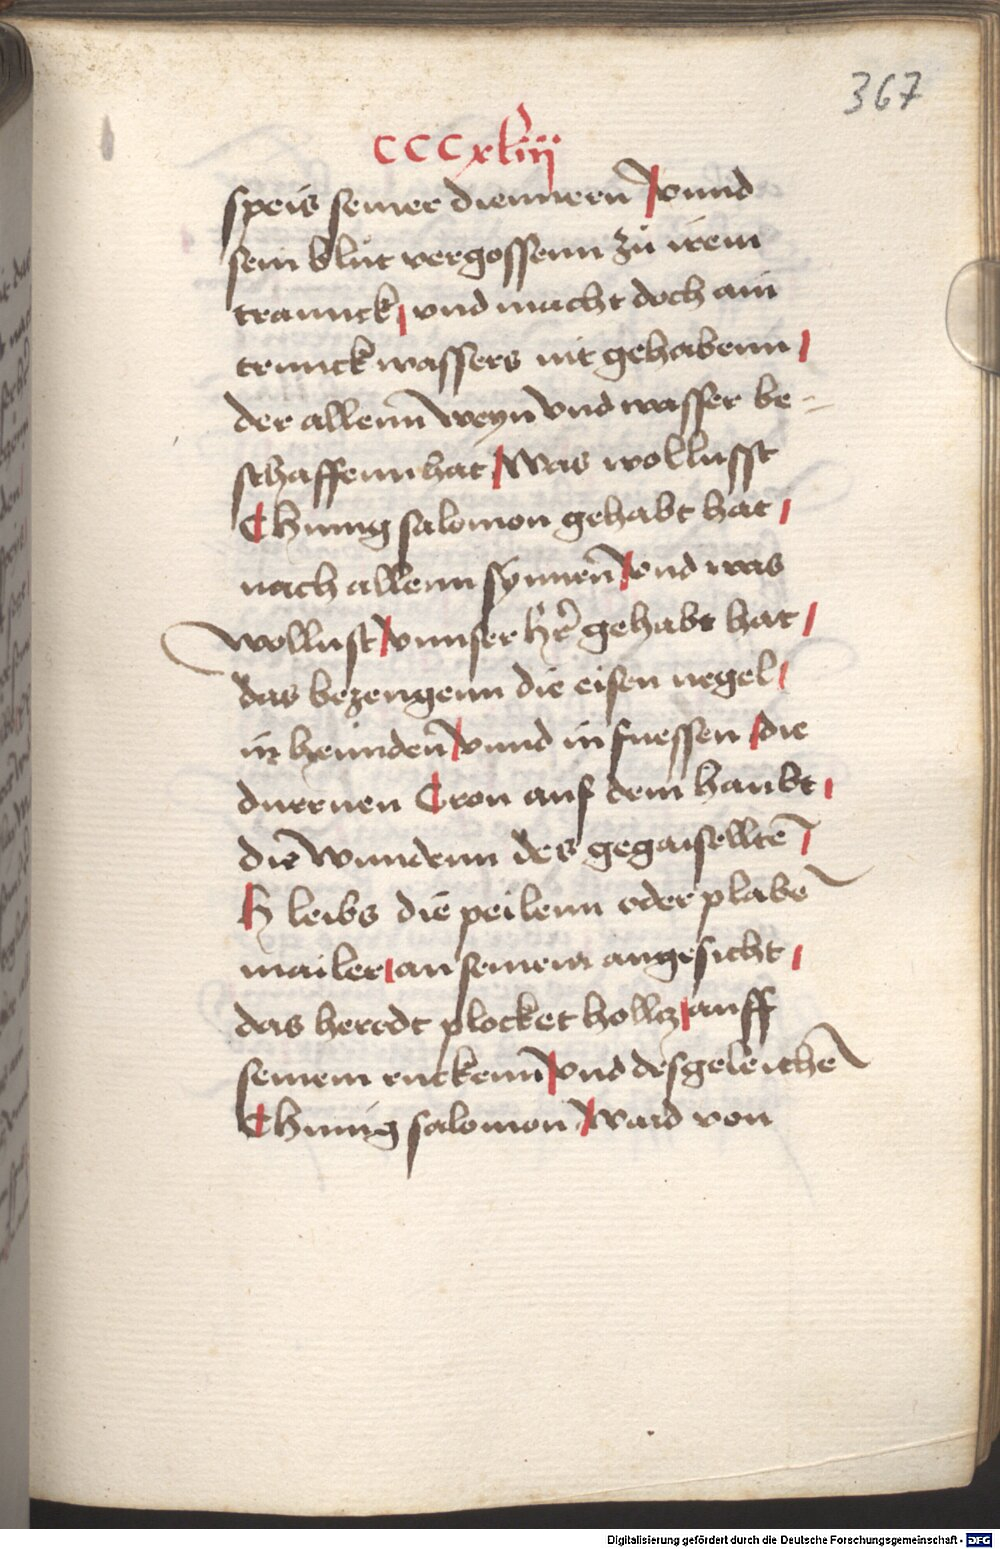 367
CCCxliij
speis seiner diennern vnnd
sein blůt vergossenn zů irem
trannck vnd macht doch ain
trunck wassers nit gehabenn
der allenn weyn vnd wasser be-
schaffenn hat Was wollusst
Chunig salomon gehabt hat
nach allenn synnen̄ vnd was
wollust vnnser hr̄ gehabt hat
das bezeugenn die eisen negel
in hennden̄ vnnd in fuessen die
durrnen Cron auf dem haubt
die wundenn des gegaiselltē
H leibs die peilenn oder plabē
mailer an seinem angesicht
das heredt plocket hollcz auff
seinem ruckenn̄ vnd desgeleichē
Chunig salomon ward von
Digitalisierung gefördert durch die Deutsche Forschungsgemeinschaft - DFG